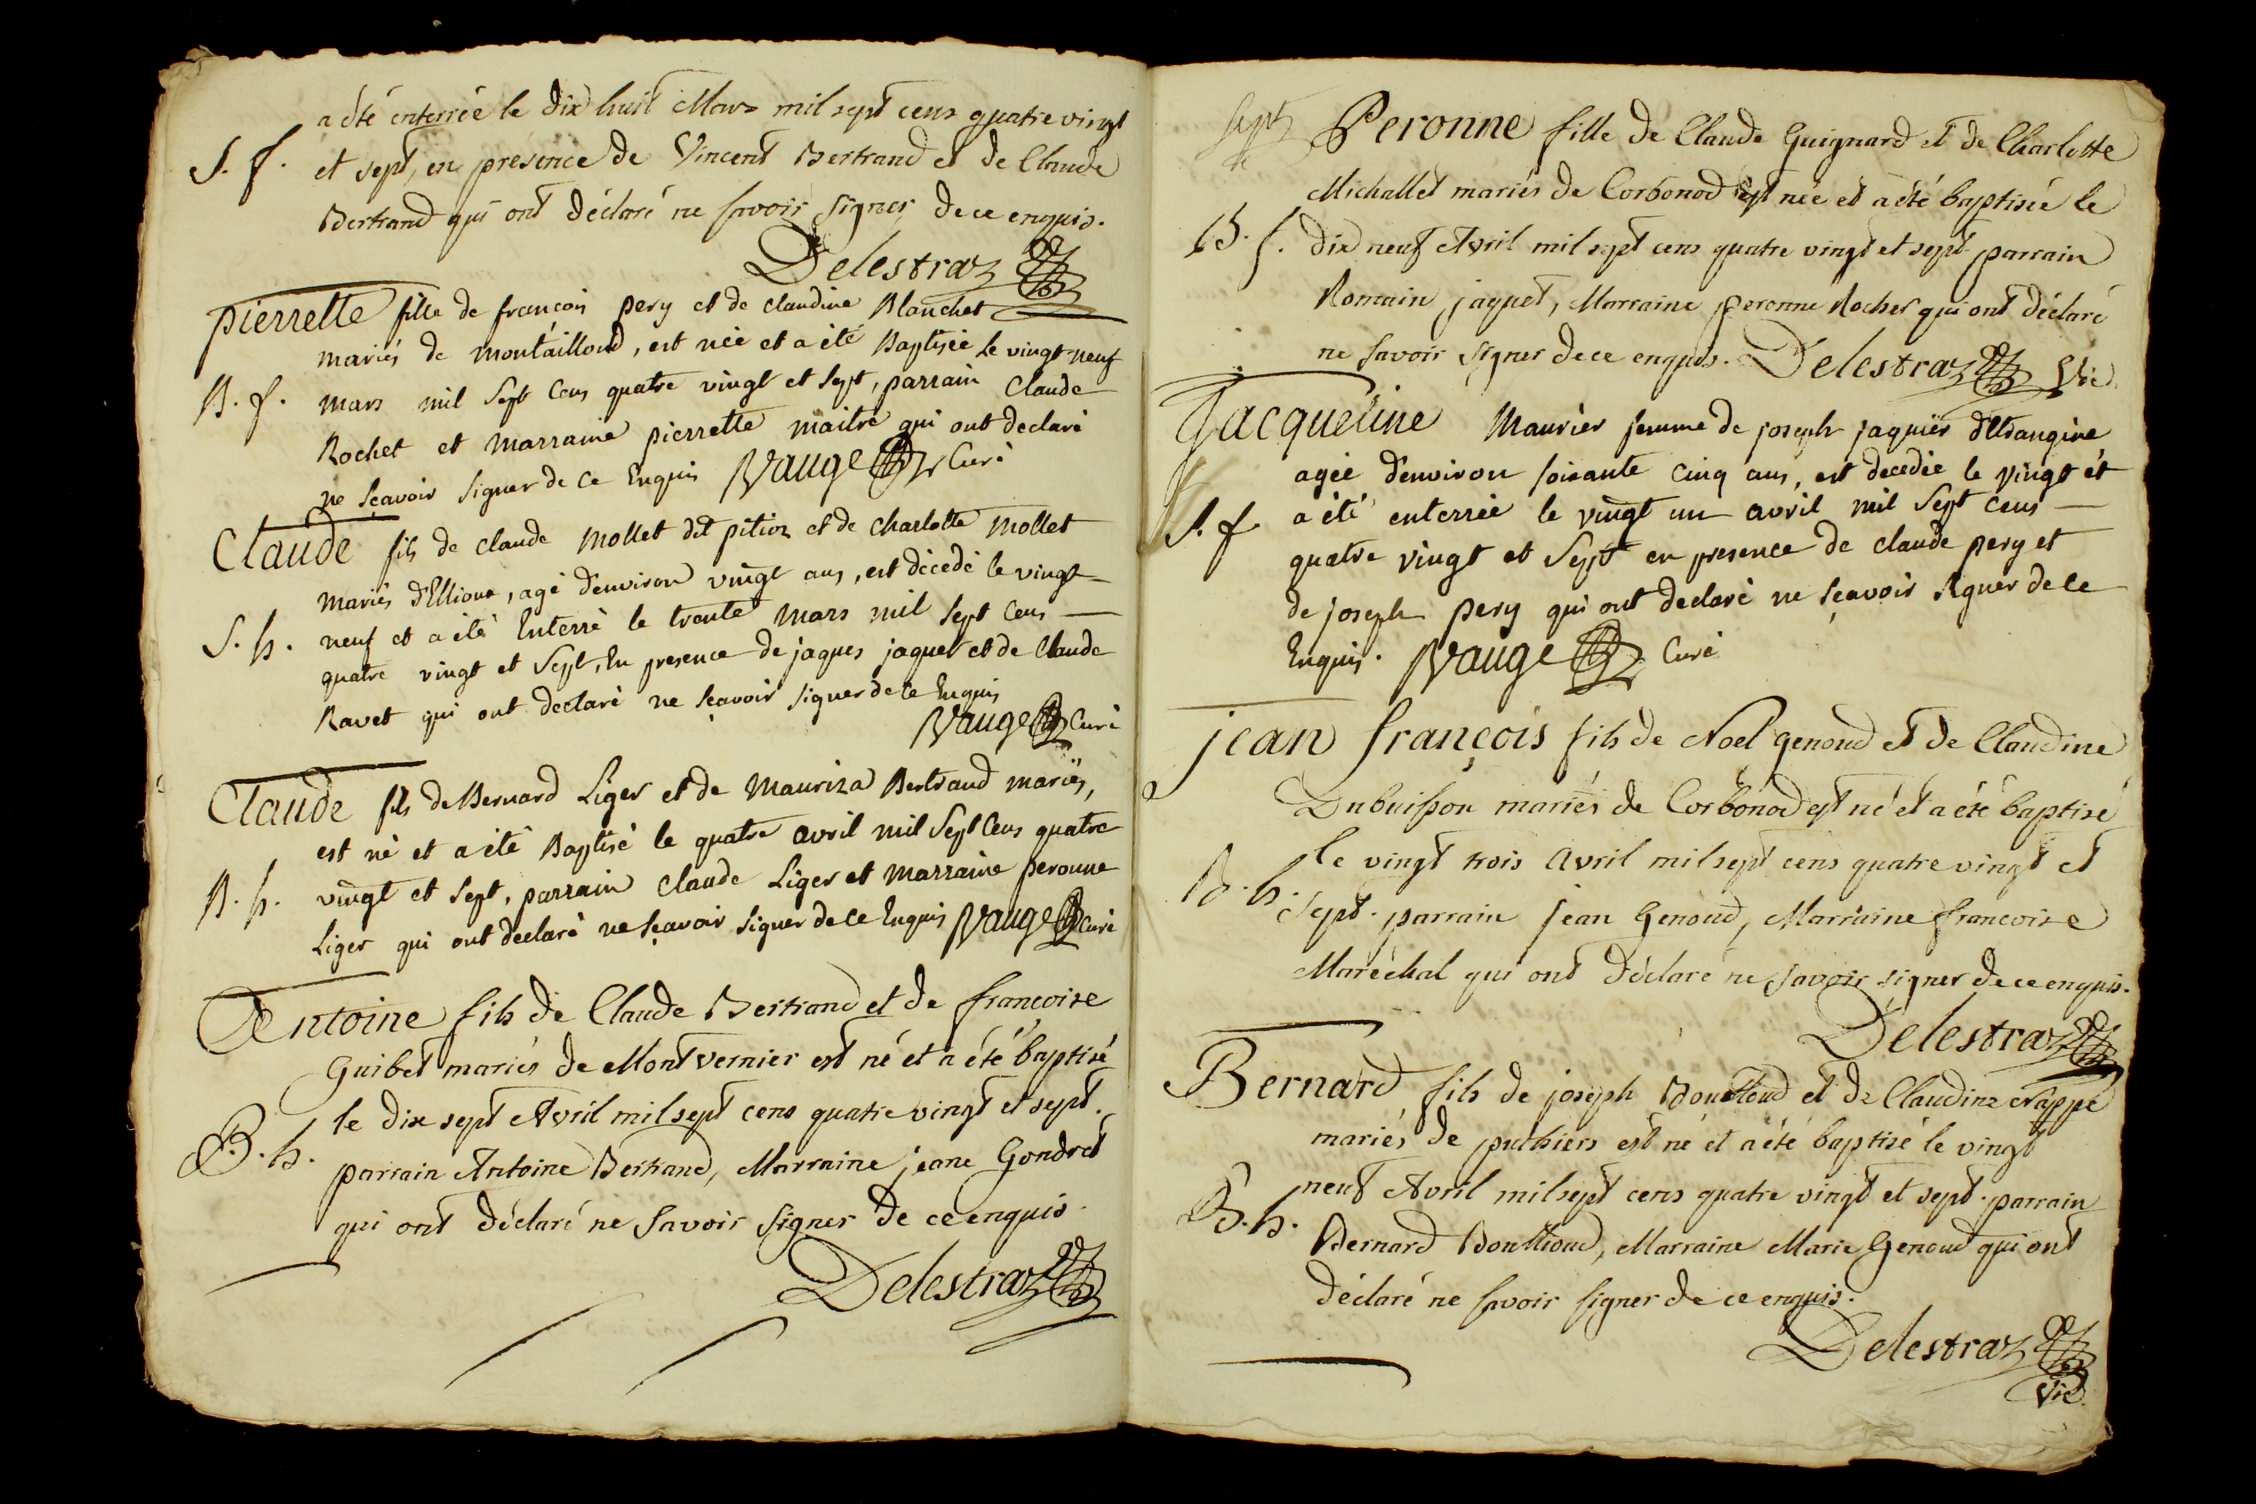 a été enterrée le dix huit Mars mil sept cens quatre vingt
S. f. et sept, en présence de Vincent Bertrand et de Claude
Bertrand qui ont déclaré ne savoir signer de ce enquis.
Delestraz
pierrette fille de françois pery et de claudine Blanchet
mariés de montailloud, est née et a été Baptisée le vingt-neuf
B. f. mars mil sept cens quatre vingt et sept, parrain Claude
Rochet et marraine pierrette maitre qui ont declaré
ne sçavoir signer de ce Enquis Vauge Curé
Claude fils de claude mollet dit pition et de charlotte mollet
mariés d'Ellioux, agé d'environ vingt ans, est décédé le vingt
S. h. neuf et a été Enterré le trente mars mil sept cens
quatre vingt et sept, En presence de jaques jaquet et de Claude
Ravet qui ont declaré ne sçavoir signer de ce Enquis
Vauge Curé
Claude fils de Bernard Liger et de Mauriza Bertrand mariés,
est né et a été Baptisé le quatre avril mil sept Cens quatre
B. h. vingt et sept, parrain claude Liger et marraine peronne
Liger qui ont declaré ne sçavoir signer de ce Enquis Vauge Curé
Antoine fils de Claude Bertrand et de françoise
Guibet mariés de Montvernier est né et a été baptisé
le dix sept Avril mil sept cens quatre vingt et sept.
B. h. parrain Antoine Bertrand, Marraine jeane Gondret
qui ont déclaré ne savoir signer de ce enquis.
Delestraz
sept
Peronne fille de Claude Guignard et de Charlotte
Michallet mariés de Corbonod est née et a été baptisée le
B. f. dix neuf Avril mil sept cens quatre vingt et sept parrain
Romain jaquet, Marraine peronne Rocher qui ont déclaré
ne savoir signer de ce enquis. Delestraz Vic.
Jacqueline Maurier femme de joseph jaquier d'Etrangine
agée d'environ soixante cinq ans, est decedée le vingt et
S. f a été enterrée le vingt un avril mil sept cens
quatre vingt et sept en presence de claude pery et
de joseph pery qui ont declaré ne sçavoir signer de ce
Enquis. Vauge Curé
jean françois fils de Noel genoud et de Claudine
Dubuisson mariés de Corbonod est né et a été baptisé
le vingt trois Avril mil sept cens quatre vingt et
B. h. sept. parrain jean Genoud, Marraine francoise
Maréchal qui ont déclaré ne savoir signer de ce enquis.
Delestraz
Bernard fils de joseph Bouttoud et de Claudine Nappe
mariés de puthiers est né et a été baptisé le vingt
neuf Avril mil sept cens quatre vingt et sept. parrain
B. h. Bernard Bouttoud, Marraine Marie Genoud qui ont
déclaré ne savoir signer de ce enquis.
Delestraz
Vic.